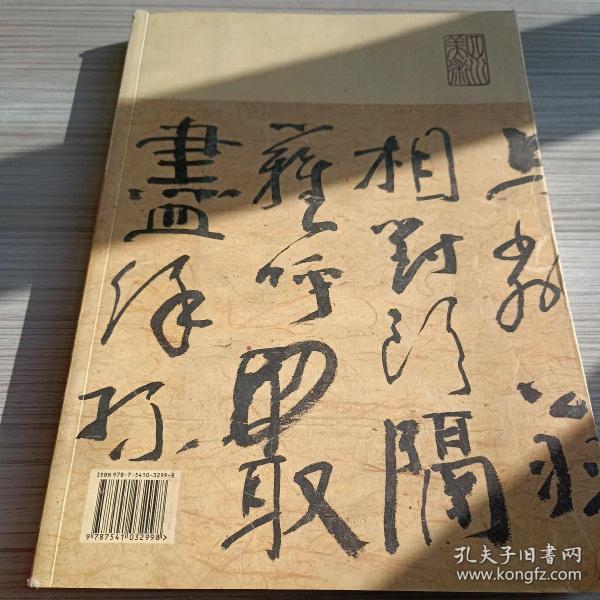 相對飲隔
籬呼取
盡餘杯
ISBN 978-7-5410-3299-8
9 787541 032998 >
孔夫子旧书网
www.kongfz.com